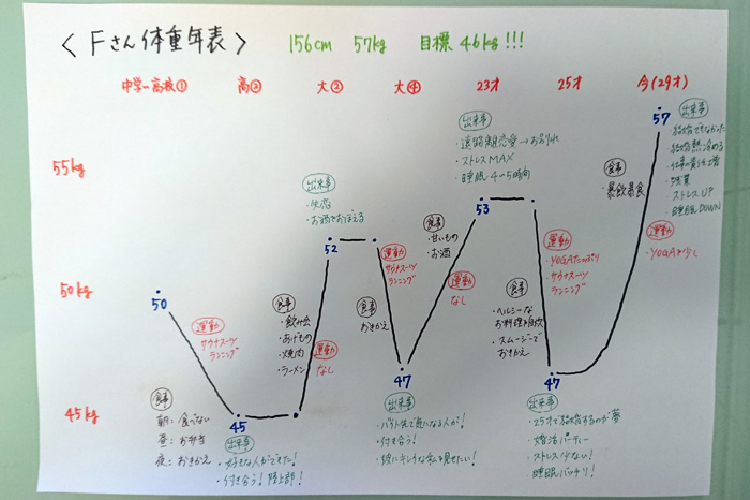 〈 Fさん体重年表 〉 156cm 57kg 目標 46kg!!!
中学〜高校① 高② 大② 大④ 23才 25才 今(29才)
55kg
50kg
45kg
50
運動
サウナスーツ
ランニング
食事
朝: 食べない
昼: お弁当
夜: おきかえ
45
出来事
・好きな人ができた!
・付き合う! 陸上部!
食事
・飲み会
・あげもの
・焼肉
・ラーメン
運動
なし
出来事
・失恋
・お酒でおぼえる
52
運動
サウナスーツ
ランニング
食事
おきかえ
47
出来事
・バイト先で気になる人が!
・付き合う!
・更にキレイな私を見せたい!
食事
・甘いもの
・お酒
運動
なし
出来事
・遠距離恋愛→お別れ
・ストレスMAX
・睡眠 4〜5時間
53
運動
・YOGAたっぷり
・サウナスーツ
ランニング
食事
・ヘルシーな
お料理を自炊
・スムージーで
おきかえ
47
出来事
・25才で結婚するのが夢
・婚活パーティー
・ストレス少ない!
・睡眠バッチリ!
食事
・暴飲暴食
運動
・YOGAを少し
57
出来事
・結婚できなかった
・結婚熱が冷める
・残業
・ストレスUP
・睡眠DOWN